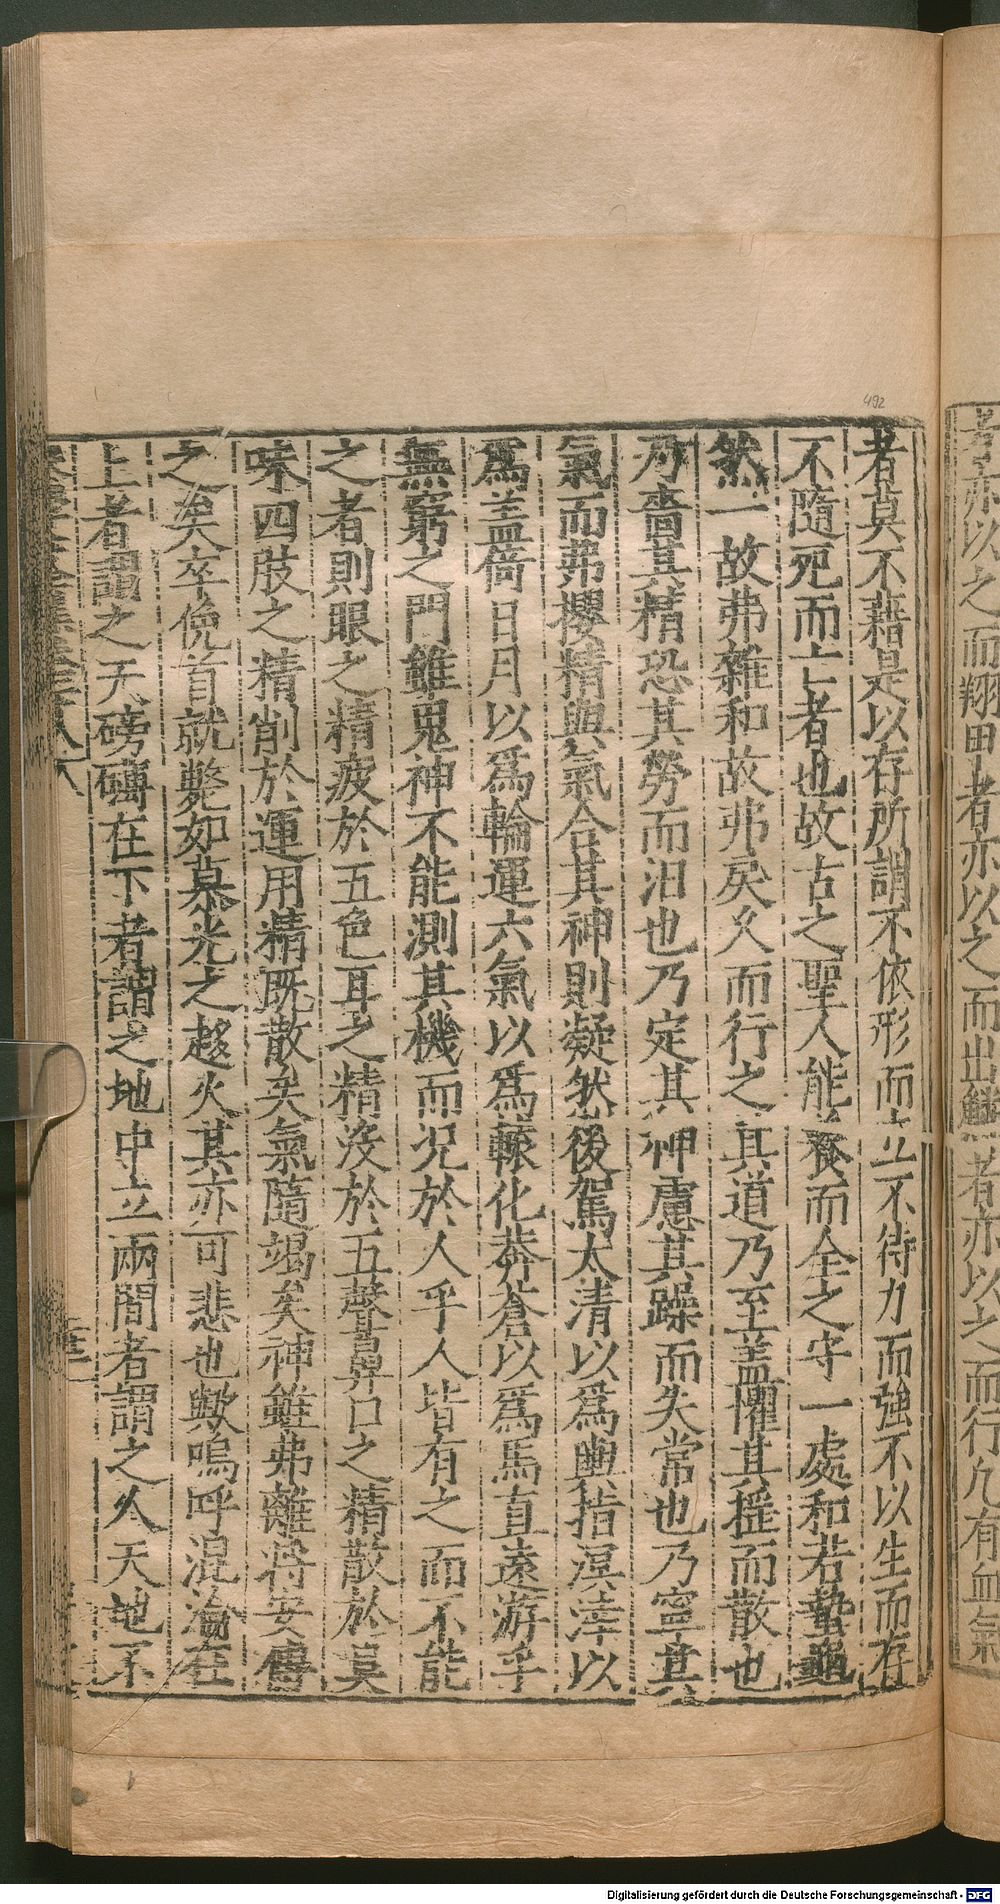 者亦以之而翔甲者亦以之而出鱗者亦以之而行凡有血氣
492
者莫不藉是以存所謂不依形而立不待力而強不以生而存
不隨死而亡者也故古之聖人能養而全之守一處和若蟄龜
然一故弗雜和故弗戾久而行之其道乃至蓋懼其搖而散也
乃嗇其精恐其勞而汩也乃定其神慮其躁而失常也乃寧其
氣而弗攖精與氣合其神則凝然後駕太清以為輿指溟涬以
為蓋倚日月以為輪運六氣以為轅化莽蒼以為馬直遠游乎
無窮之門雖鬼神不能測其機而況於人乎人皆有之而不能
之者則眼之精疲於五色耳之精沒於五聲鼻口之精散於臭
味四肢之精削於運用精既散矣氣隨竭矣神雖弗離將安傅
之矣卒俛首就斃如慕光之趍火其亦可悲也歟嗚呼混淪在
上者謂之天磅礴在下者謂之地中立兩間者謂之人天地不
Digitalisierung gefördert durch die Deutsche Forschungsgemeinschaft - DFG